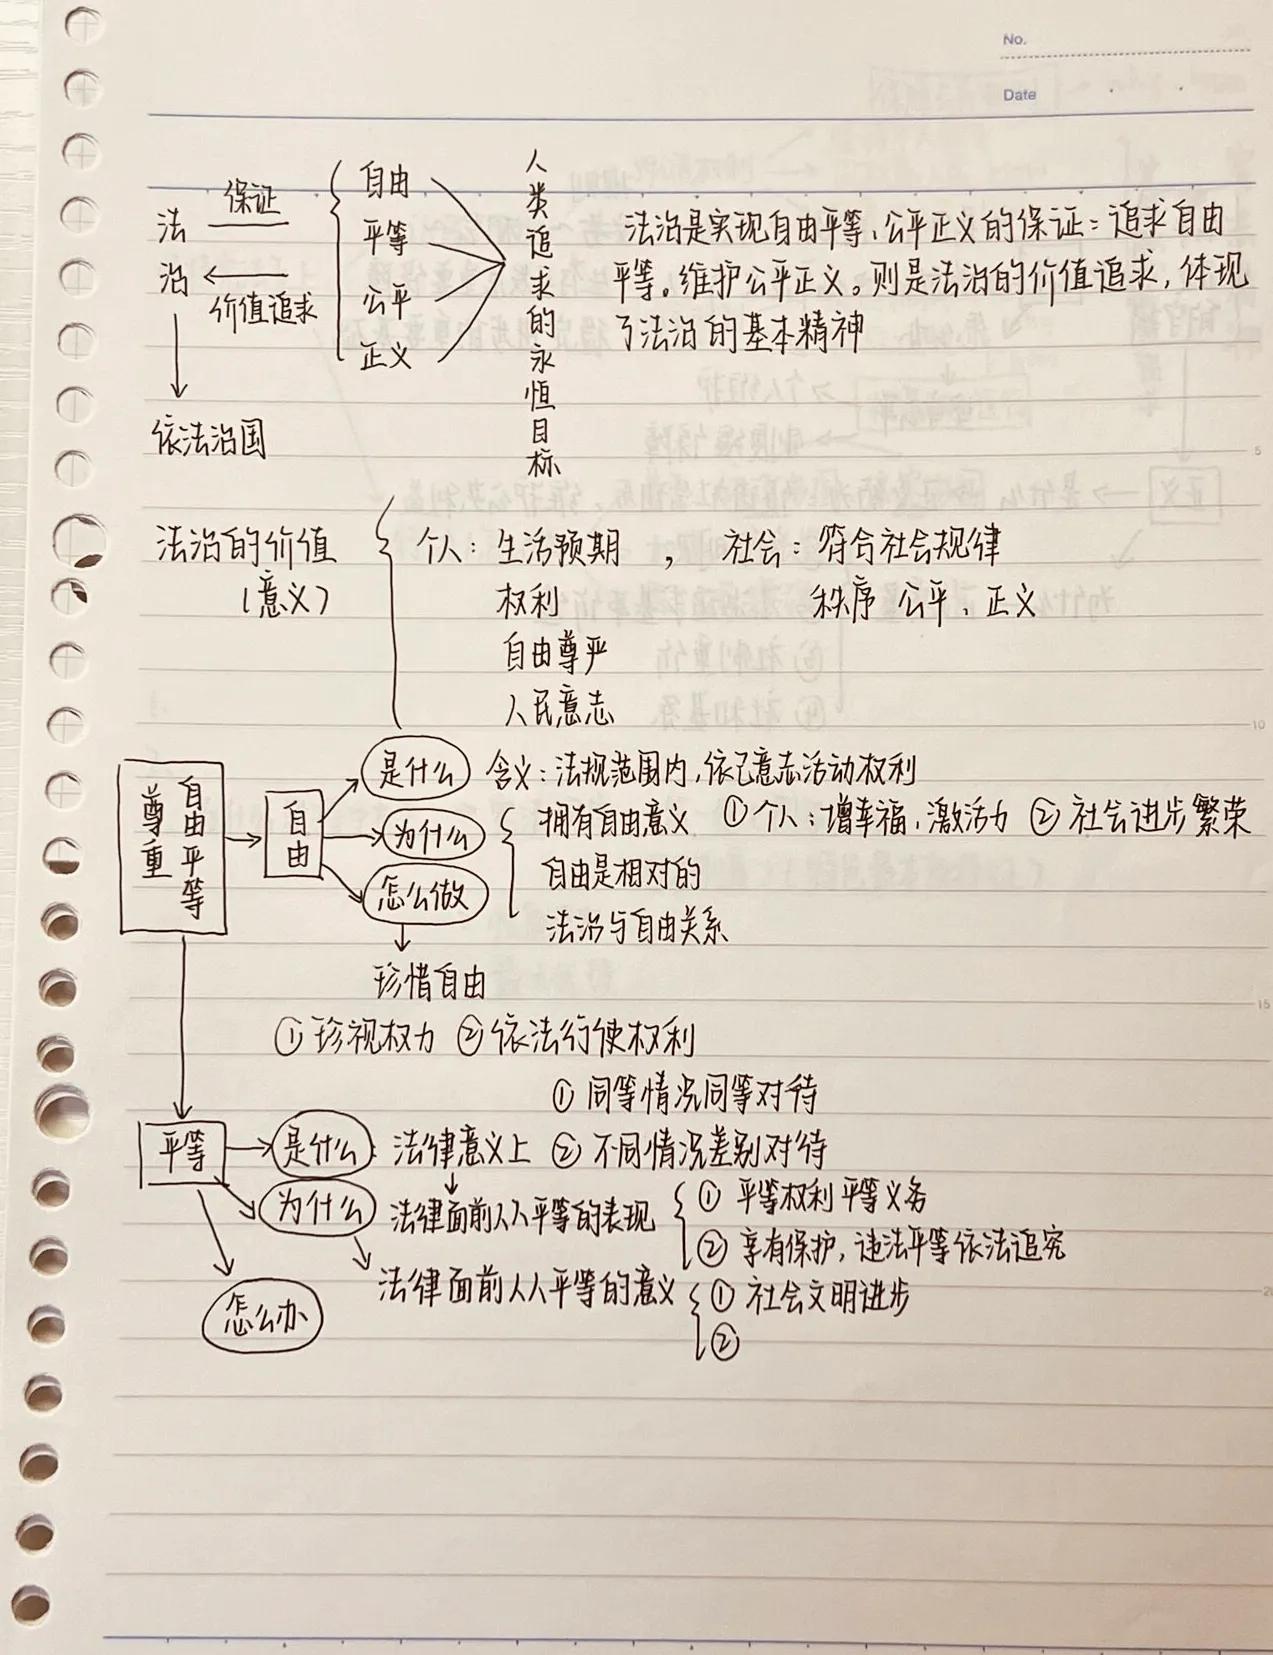 No.
Date
法治
保证
价值追求
自由
平等
公平
正义
人类追求的永恒目标
法治是实现自由平等、公平正义的保证：追求自由
平等。维护公平正义。则是法治的价值追求，体现
了法治的基本精神
依法治国
法治的价值
（意义）
个人：生活预期 ，社会：符合社会规律
权利 秩序 公平、正义
自由尊严
人民意志
尊重自由平等
自由
是什么 含义：法规范围内，依己意志活动权利
为什么 拥有自由意义 ①个人：增幸福，激活力 ②社会进步繁荣
自由是相对的
怎么做
法治与自由关系
珍惜自由
①珍视权力 ②依法行使权利
①同等情况同等对待
平等 是什么：法律意义上 ②不同情况差别对待
为什么 法律面前人人平等的表现 ①平等权利平等义务
②享有保护，违法平等依法追究
法律面前人人平等的意义 ①社会文明进步
怎么办 ②
5
10
15
20